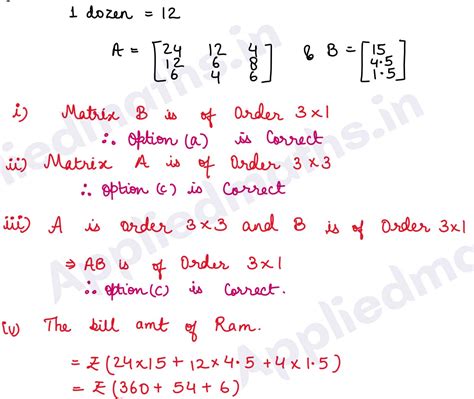 1 dozen = 12
A = [24 12 4
12 6 8
6 4 6] & B = [15
4.5
1.5]
i) Matrix B is of Order 3×1
∴ option (a) is Correct
ii) Matrix A is of Order 3×3
∴ option (c) is Correct
iii) A is order 3×3 and B is of Order 3×1
⇒ AB is of Order 3×1
∴ option (c) is Correct.
(v) The bill amt of Ram.
= ₹ (24×15 + 12×4.5 + 4×1.5)
= ₹ (360 + 54 + 6)
Appliedmaths.in